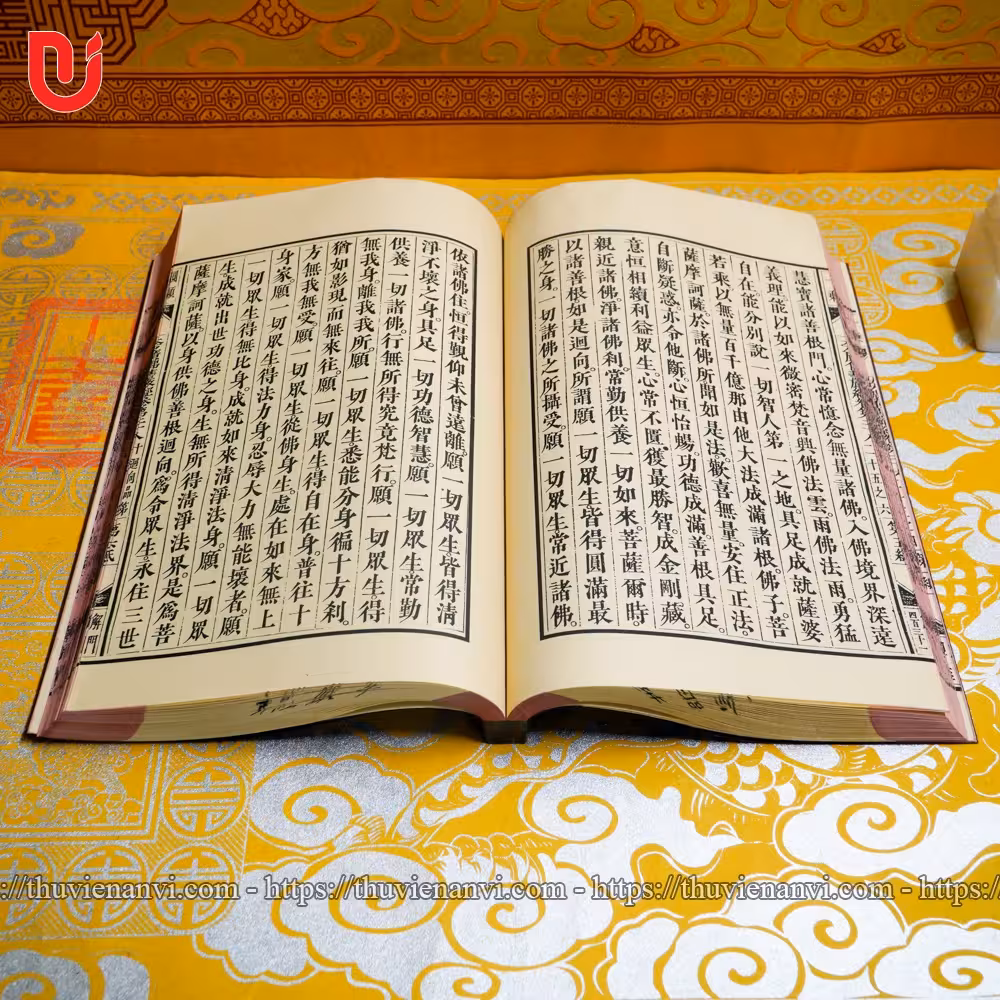 慧寶諸善根門。心常憶念無量諸佛。入佛境界深達
義理。能以如來微密梵音。興佛法雲。雨佛法雨。勇猛
自在。能分別說一切智人第一之地。具足成就薩婆
若乘。以無量百千億那由他大法成滿諸根。佛子。菩
薩摩訶薩。於諸佛所聞如是法。歡喜無量。安住正法。
自斷疑惑。亦令他斷。心恒怡暢。功德成滿。善根具足。
意恒相續。利益眾生。心常不匱。獲最勝智。成金剛藏。
親近諸佛。淨諸佛剎。常勤供養一切如來。菩薩爾時
以諸善根如是迴向。所謂願一切眾生皆得圓滿最
勝之身。一切諸佛之所攝受。願一切眾生常近諸佛。
依諸佛住。恒得覲仰。未曾遠離。願一切眾生皆得清
淨不壞之身。具足一切功德智慧。願一切眾生常勤
供養一切諸佛。行無所得究竟梵行。願一切眾生得
無我身。離我我所。願一切眾生悉能分身徧十方剎。
猶如影現而無來往。願一切眾生得自在身。普往十
方無我無受。願一切眾生從佛身生。處在如來無上
身家。願一切眾生得法力身。忍辱大力無能壞者。願
一切眾生得無比身。成就如來清淨法身。願一切眾
生成就出世功德之身。生無所得清淨法界。是爲菩
薩摩訶薩。以身供佛善根迴向。爲令眾生永住三世
四百三十一
://thuvienanvi.com - https://thuvienanvi.com - https://thuvienanvi.com - https://t